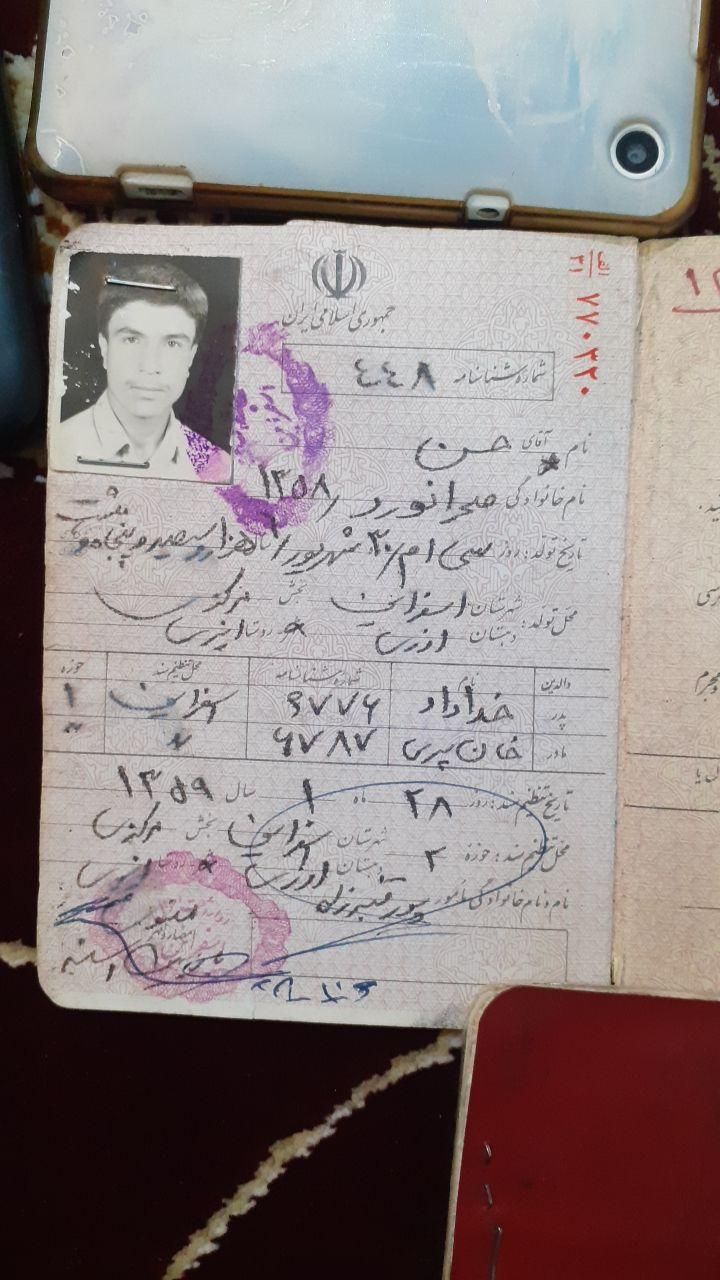 جمهوری اسلامی ایران
الو/۳۱ ۷۷۰۳۲۰
شماره شناسنامه ۴۴۸
نام آقای حسن
نام خانوادگی صحرانورد
تاریخ تولد: روز سی ام/۳۰ شهریور/ هزار و سیصد و پنجاه و هشت ۱۳۵۸
محل تولد: شهرستان اسفراین بخش مرکزی
دهستان روستا
والدین نام شماره شناسنامه محل تنظیم سند حوزه
پدر خداداد ۹۷۷۶ اسفراین ۱
مادر خان پری ۶۷۸۷ " "
تاریخ تنظیم سند: روز ۲۸ ماه ۱ سال ۱۳۵۹
محل تنظیم سند: حوزه ۲ شهرستان اسفراین بخش مرکزی
دهستان روستا
نام و نام خانوادگی مأمور